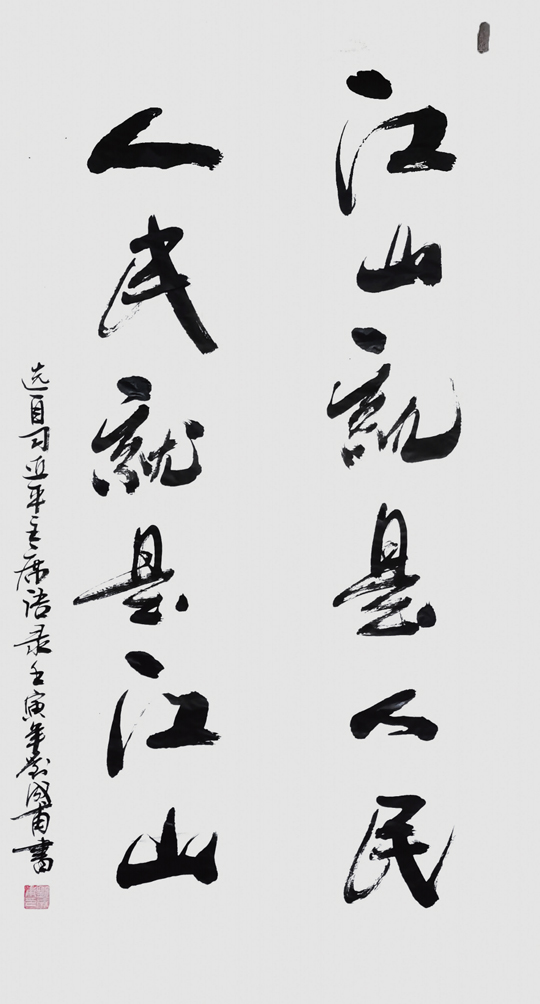 江山就是人民
人民就是江山
选自习近平主席语录壬寅年刘成甫书